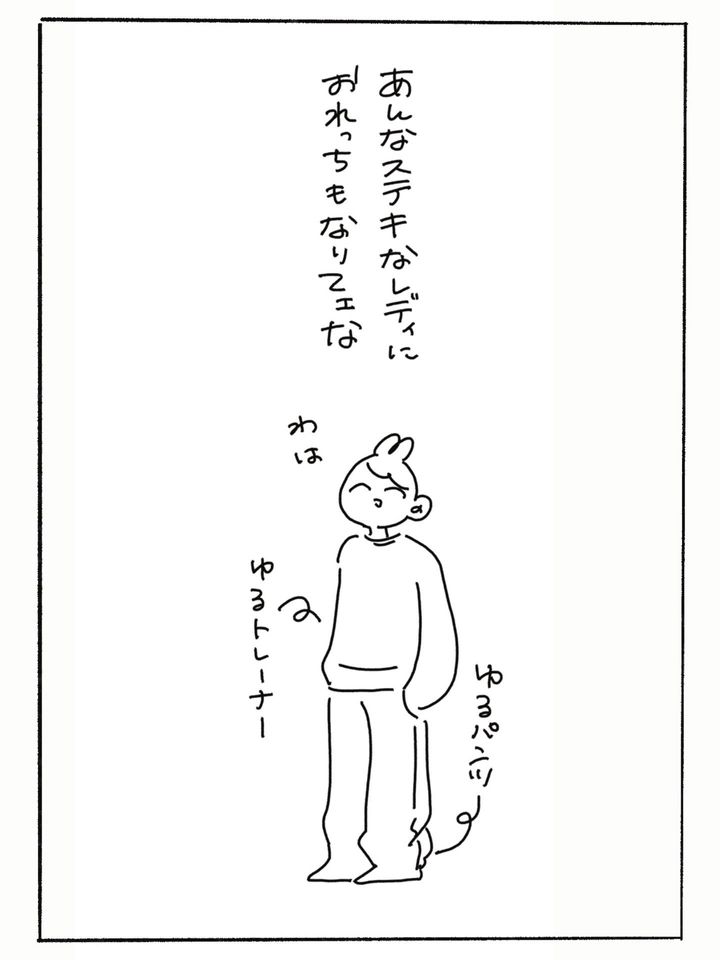 あんなステキなレディに
おれっちもなりてェな
わは
ゆるトレーナー
ゆるパンツ